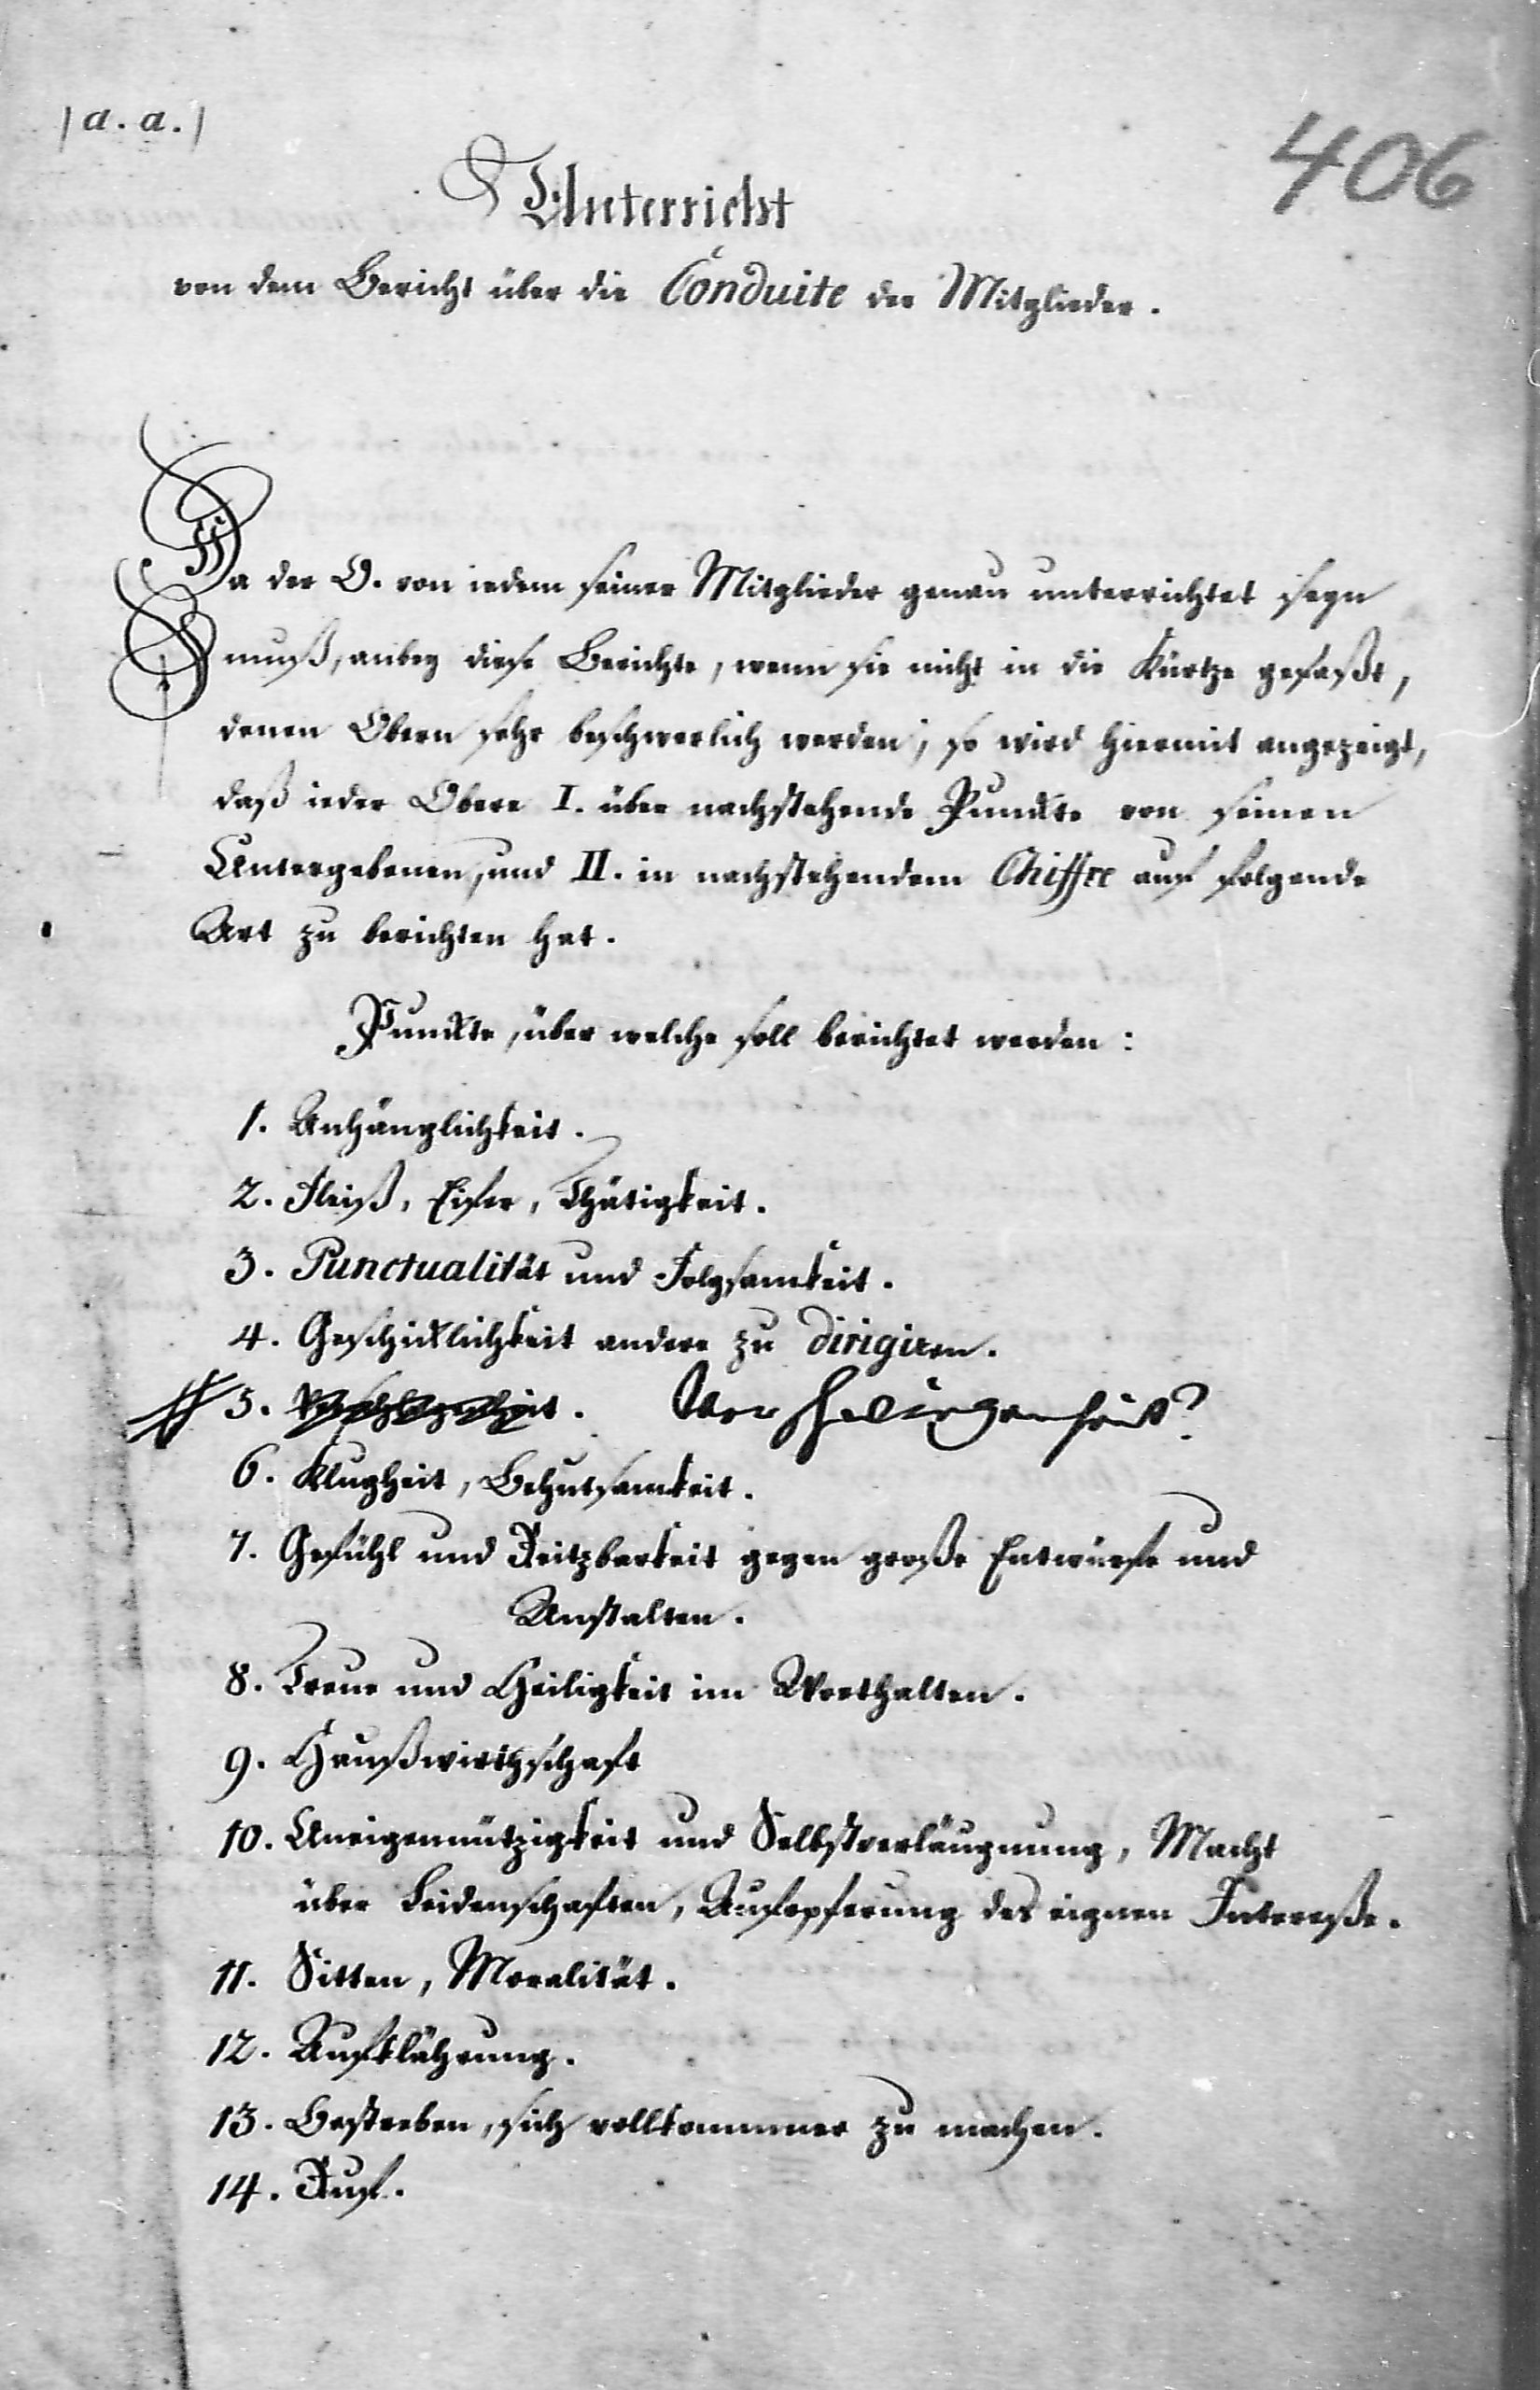 /a. a./
406
Unterricht
von dem Bericht über die Conduite der Mitglieder.
Da der O. von iedem seiner Mitglieder genau unterrichtet seyn
muß, anbey diese Berichte, wenn sie nicht in die Kürtze gefaßt,
denen Obern sehr beschwerlich werden; so wird hiermit angezeigt,
daß ieder Obere I. über nachstehende Punckte von seinen
Untergebenen, und II. in nachstehendem Chiffre auf folgende
Art zu berichten hat.
Punckte, über welche soll berichtet werden:
1. Anhänglichkeit.
2. Fleiß, Eifer, Thätigkeit.
3. Punctualität und Folgsamkeit.
4. Geschicklichkeit andere zu dirigiren.
5. Verschwiegenheit?
6. Klugheit, Behutsamkeit.
7. Gefühl und Reitzbarkeit gegen große Entwürfe und
Anstalten.
8. Treue und Heiligkeit im Worthalten.
9. Haußwirthschaft
10. Uneigennützigkeit und Selbstverläugnung, Macht
über Leidenschaften, Aufopferung des eignen Intereße.
11. Sitten, Moralität.
12. Aufklährung.
13. Bestreben, sich vollkommner zu machen.
14. Ruf.